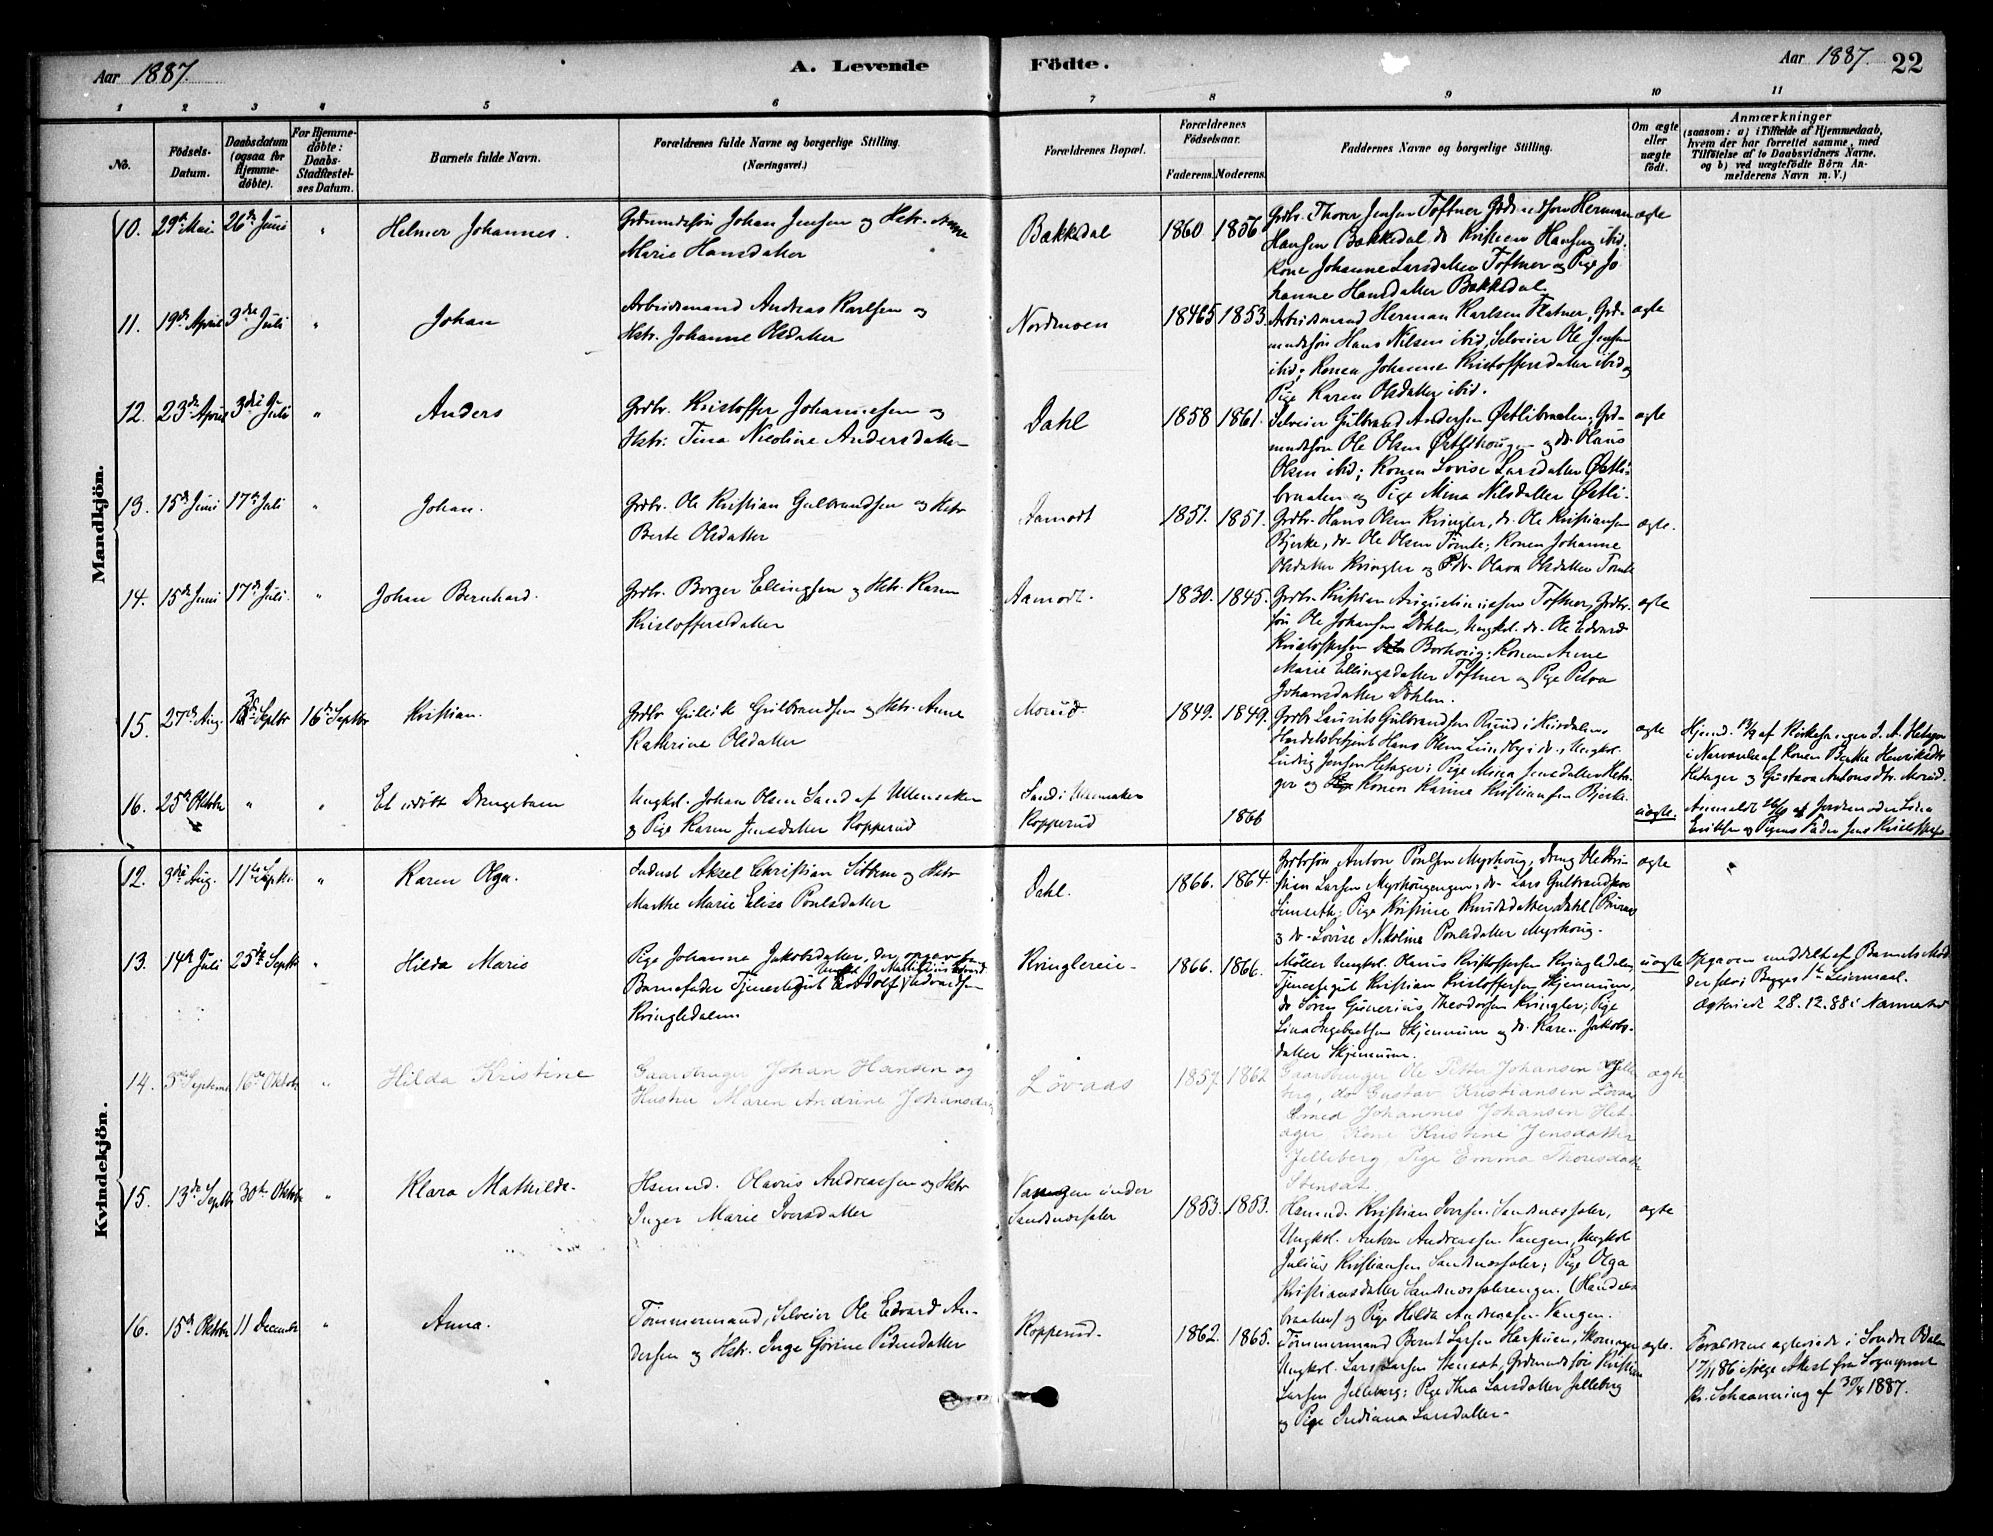 Aar 1887.
A. Levende
Födte.
Aar 1887.
22
1 2 3 4 5 6 7 8 9 10 11
No.
Födsels-
Datum.
Daabsdatum
(ogsaa for
Hjemme-
döbte).
For Hjemme-
döbte:
Daabs-
Stadfæstel-
ses Datum.
Barnets fulde Navn.
Forældrenes fulde Navne og borgerlige Stilling.
(Næringsvei.)
Forældrenes Bopæl.
Forældrenes
Födselsaar.
Faderens. Moderens.
Faddernes Navne og borgerlige Stilling.
Om ægte
eller
uægte
födt.
Anmærkninger
(saasom: a) i Tilfælde af Hjemmedaab,
hvem der har forrettet samme, med
Tilföielse af to Daabsvidners Navne.
og b) ved uægtefödte Börn An-
melderens Navn m. V.)
Mandkjön.
10. 29de Mai 26de Juni " Helmer Johannes.
Grdmandssøn Johan Jensen og Hstr. Anne
Marie Hansdatter
Bakkedal 1860 1856
Grdbr. Thorer Jensen Toftner Grdmdsøn Herman
Hansen Bakkedal do Kristian Hansen ibid.
Kone Johanne Larsdatter Toftner og Pige Jo
hanne Hansdatter Bakkedal
ægte
11. 19de April 3die Juli " Johan
Arbeidsmand Andreas Karlsen og
Hstr. Johanne Olsdatter
Nordmoen 1853.
Arbeidsmand Herman Karlsen Flatner, Grd-
mandssøn Hans Nilsen ibid, Selveier Ole Jensen
ibid; Konen Johanne Kristoffersdatter ibid og
Pige Karen Olsdatter ibid.
ægte
12. 23de April 3die Juli " Anders
Grdbr. Kristoffer Johannessen og
Hstr. Tina Nicoline Andersdatter
Dahl 1858 1861.
Selveier Gulbrand Andersen Østlibraaten, Grd-
mandssøn Ole Olsen og do. Olaus
Olsen ibid; Konen Lovise Larsdatter Østli-
braaten og Pige Mina Nilsdatter Østli-
ægte
13. 15de Juni 17de Juli " Johan.
Grdbr. Ole Kristian Gulbrandsen og Hstr
Berte Olsdatter
Aamodt 1851. 1851.
Grdbr. Hans Olsen Kringler, do. Ole Kristiansen
Bjerke, do. Ole Olsen Tømte; Konen Johanne
Olsdatter Kringler og do. Olava Olsdatter Tømte
ægte.
14. 15de Juni 17de Juli. " Johan Bernhard.
Grdbr. Borger Ellingsen og Hstr. Karen
Kristoffersdatter
Aamodt. 1830. 1845.
Grdbr. Kristian Augustinussen Toftner, Grdbr.
søn Ole Johansen Dohlen, Ungkl. do. Ole Edvard
Kristoffersen Borhoug; Konen Anne
Marie Ellingsdatter Toftner og Pige Petra
Johansdatter Dohlen.
ægte
15. 27de Aug. Septbr 16de Septbr Kristian.
Grdbr Gulbrandsen og Hstr. Anne
Kathrine Olsdatter
Morud. 1849. 1849.
Grdbr Laurits Gulbrandsen Ruud i Hurdalen,
Handelsbetjent Hans Olsen Lundby i do., Ungkl.
Ludvig Jensen Hetager; Pige Mina Jensdatter Heta-
ger og Konen Karine Kristiansen Bjerke.
ægte
Hjemd. af Kirkesanger J. A. Hetager
i Nærværelse af Konen Berthe Henriksdtr
Hetager og Gustava Antonsdtr. Morud.
16. 25de Oktobr " " Et udøbt Drengebarn
Ungkl. Johan Olsen Sand af Ullensaker
og Pige Karen Jensdatter Kopperud
Sand i Ullensaker
Kopperud
1866
uægte.
Anmeldt af Jordmoder Lina
Eriksen og Pigens Fader Jens
Kvindekjön.
12. 3die Aug. 11te Septbr. " Karen Olga.
Indust Aksel Christian Sittem og Hstr
Marthe Marie Elise Poulsdatter
Dahl. 1866. 1864.
Grdbrsøn Anton Poulsen Myrhoug, Dreng Ole Kri-
stian Larsen Myrhougengen; do. Lars Gulbrandsen
Linseth; Pige Kristine Knudsdatter Dahl
og do. Lovise Nikoline Poulsdatter Myrhoug.
ægte
13. 14de Juli 25de Septbr " Hilda Marie
Pige Johanne Jakobsdatter, der opgav som
Barnefader Tjenestegut Adolf Edvardsen
Kringledalen
Kringlereie 1866. 1866.
Møller Ungkl. Olaus Kristoffersen Kringledalen,
Tjenestegut Kristian Kristoffersen Skjennum,
do Søren Gunerius Theodorsen Kringler; Pige
Lina Ingebretsen Skjennum og do. Karen Jakobs-
datter Skjennum.
uægte
Opgaven meddelt af Barnets Mo-
der selv; Begges 1ste Leiermaal.
Ægteviede 28.12.88 i Nannestad
14. 5te Septembr 16de Oktobr " Hilda Kristine
Gaardbruger Johan Hansen og
Hustru Maren Andrine Johansdtr.
Løvaas 1857 1862
Gaardbruger Ole Petter Johansen Jelle
berg, do Gustav Kristiansen Løvaas
Smed Johannes Johansen Het-
ager Kone Kristine Jensdatter
Jelleberg Pige Emma Thorsdatter
Stensat
ægte
15. 13de Septbr 30te Oktobr " Klara Mathilde.
Hsmnd. Olavus Andreassen og Hstr
Inger Marie Iversdatter
Vangen under
Sandsnessæter
1853. 1853.
Hsmnd. Kristian Iversen Sandsnessæter,
Ungkl. Anton Andreassen Vangen, Ungkl
Julius Kristiansen Sandsnessæter; Pige Olga
Kristiansdatter
og Pige Hilda Andreassen Vangen.
ægte
16. 15de Oktobr 11 Decembr " Anna.
Tømmermand, Selveier Ole Edvard An-
dersen og Hstr. Inge Gørine Pedersdatter
Kopperud. 1862. 1865.
Tømmermand Bernt Larsen Skomager
Ungkl. Lars Larsen Stensat, Grdmandssøn Kristian
Larsen Jelleberg; Pige Thea Larsdatter Jelleberg
og Pige Indiana Larsdatter
ægte.
Forældrene ægteviede i Søndre Odalen
17/11 86 ifølge Attest fra Sogneprest
Schaanning af 30/4 1887.